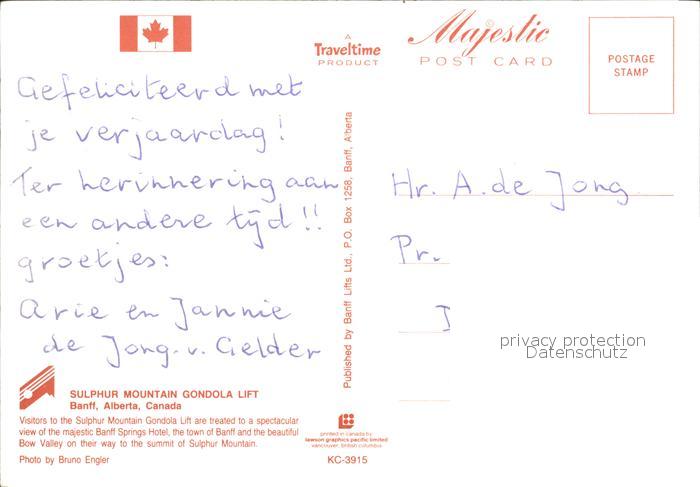 A
Traveltime
PRODUCT
Majestic
POST CARD
POSTAGE
STAMP
Gefeliciteerd met
je verjaardag!
Ter herinnering aan
een andere tijd!!
groetjes:
Arie en Jannie
de Jong-v. Gelder
Published by Banff Lifts Ltd., P.O. Box 1258, Banff, Alberta
Hr. A. de Jong
Pr.
J
privacy protection
Datenschutz
SULPHUR MOUNTAIN GONDOLA LIFT
Banff, Alberta, Canada
Visitors to the Sulphur Mountain Gondola Lift are treated to a spectacular
view of the majestic Banff Springs Hotel, the town of Banff and the beautiful
Bow Valley on their way to the summit of Sulphur Mountain.
Photo by Bruno Engler
printed in canada by
lawson graphics pacific limited
vancouver, british columbia
KC-3915